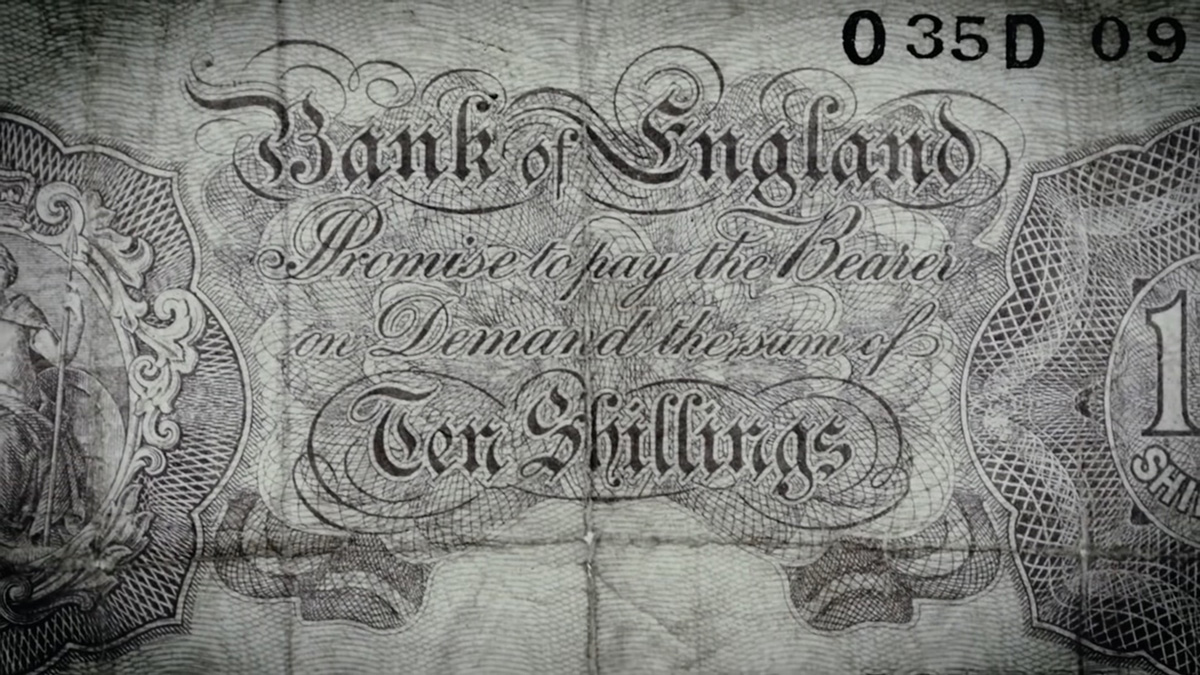 O35D 09
Bank of England
Promise to pay the Bearer
on Demand the sum of
Ten Shillings
1